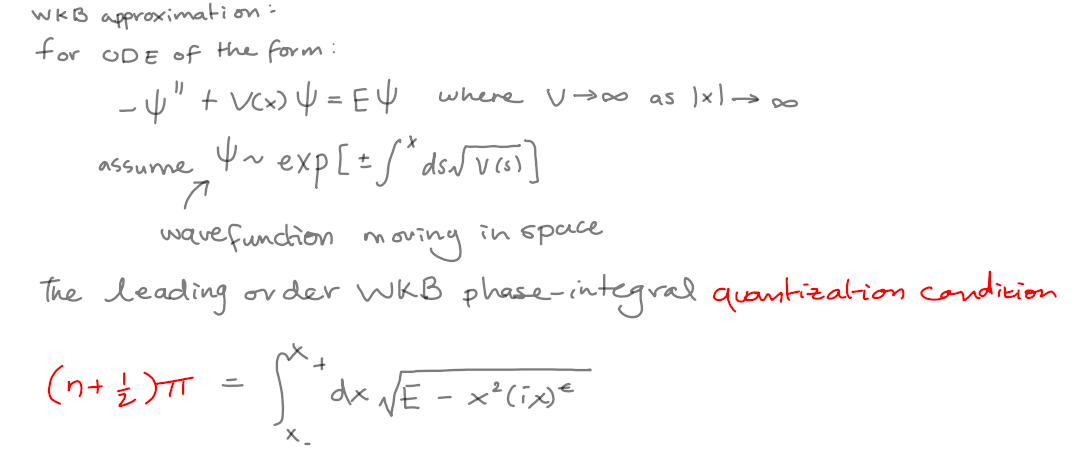 WKB approximation:
for ODE of the form:
-ψ'' + V(x) ψ = Eψ where V→∞ as |x|→∞
assume ψ ~ exp[± ∫^x ds√V(s)]
wavefunction moving in space
The leading order WKB phase-integral quantization condition
(n+½)π = ∫_{x_-}^{x_+} dx √E - x²(ix)^ϵ